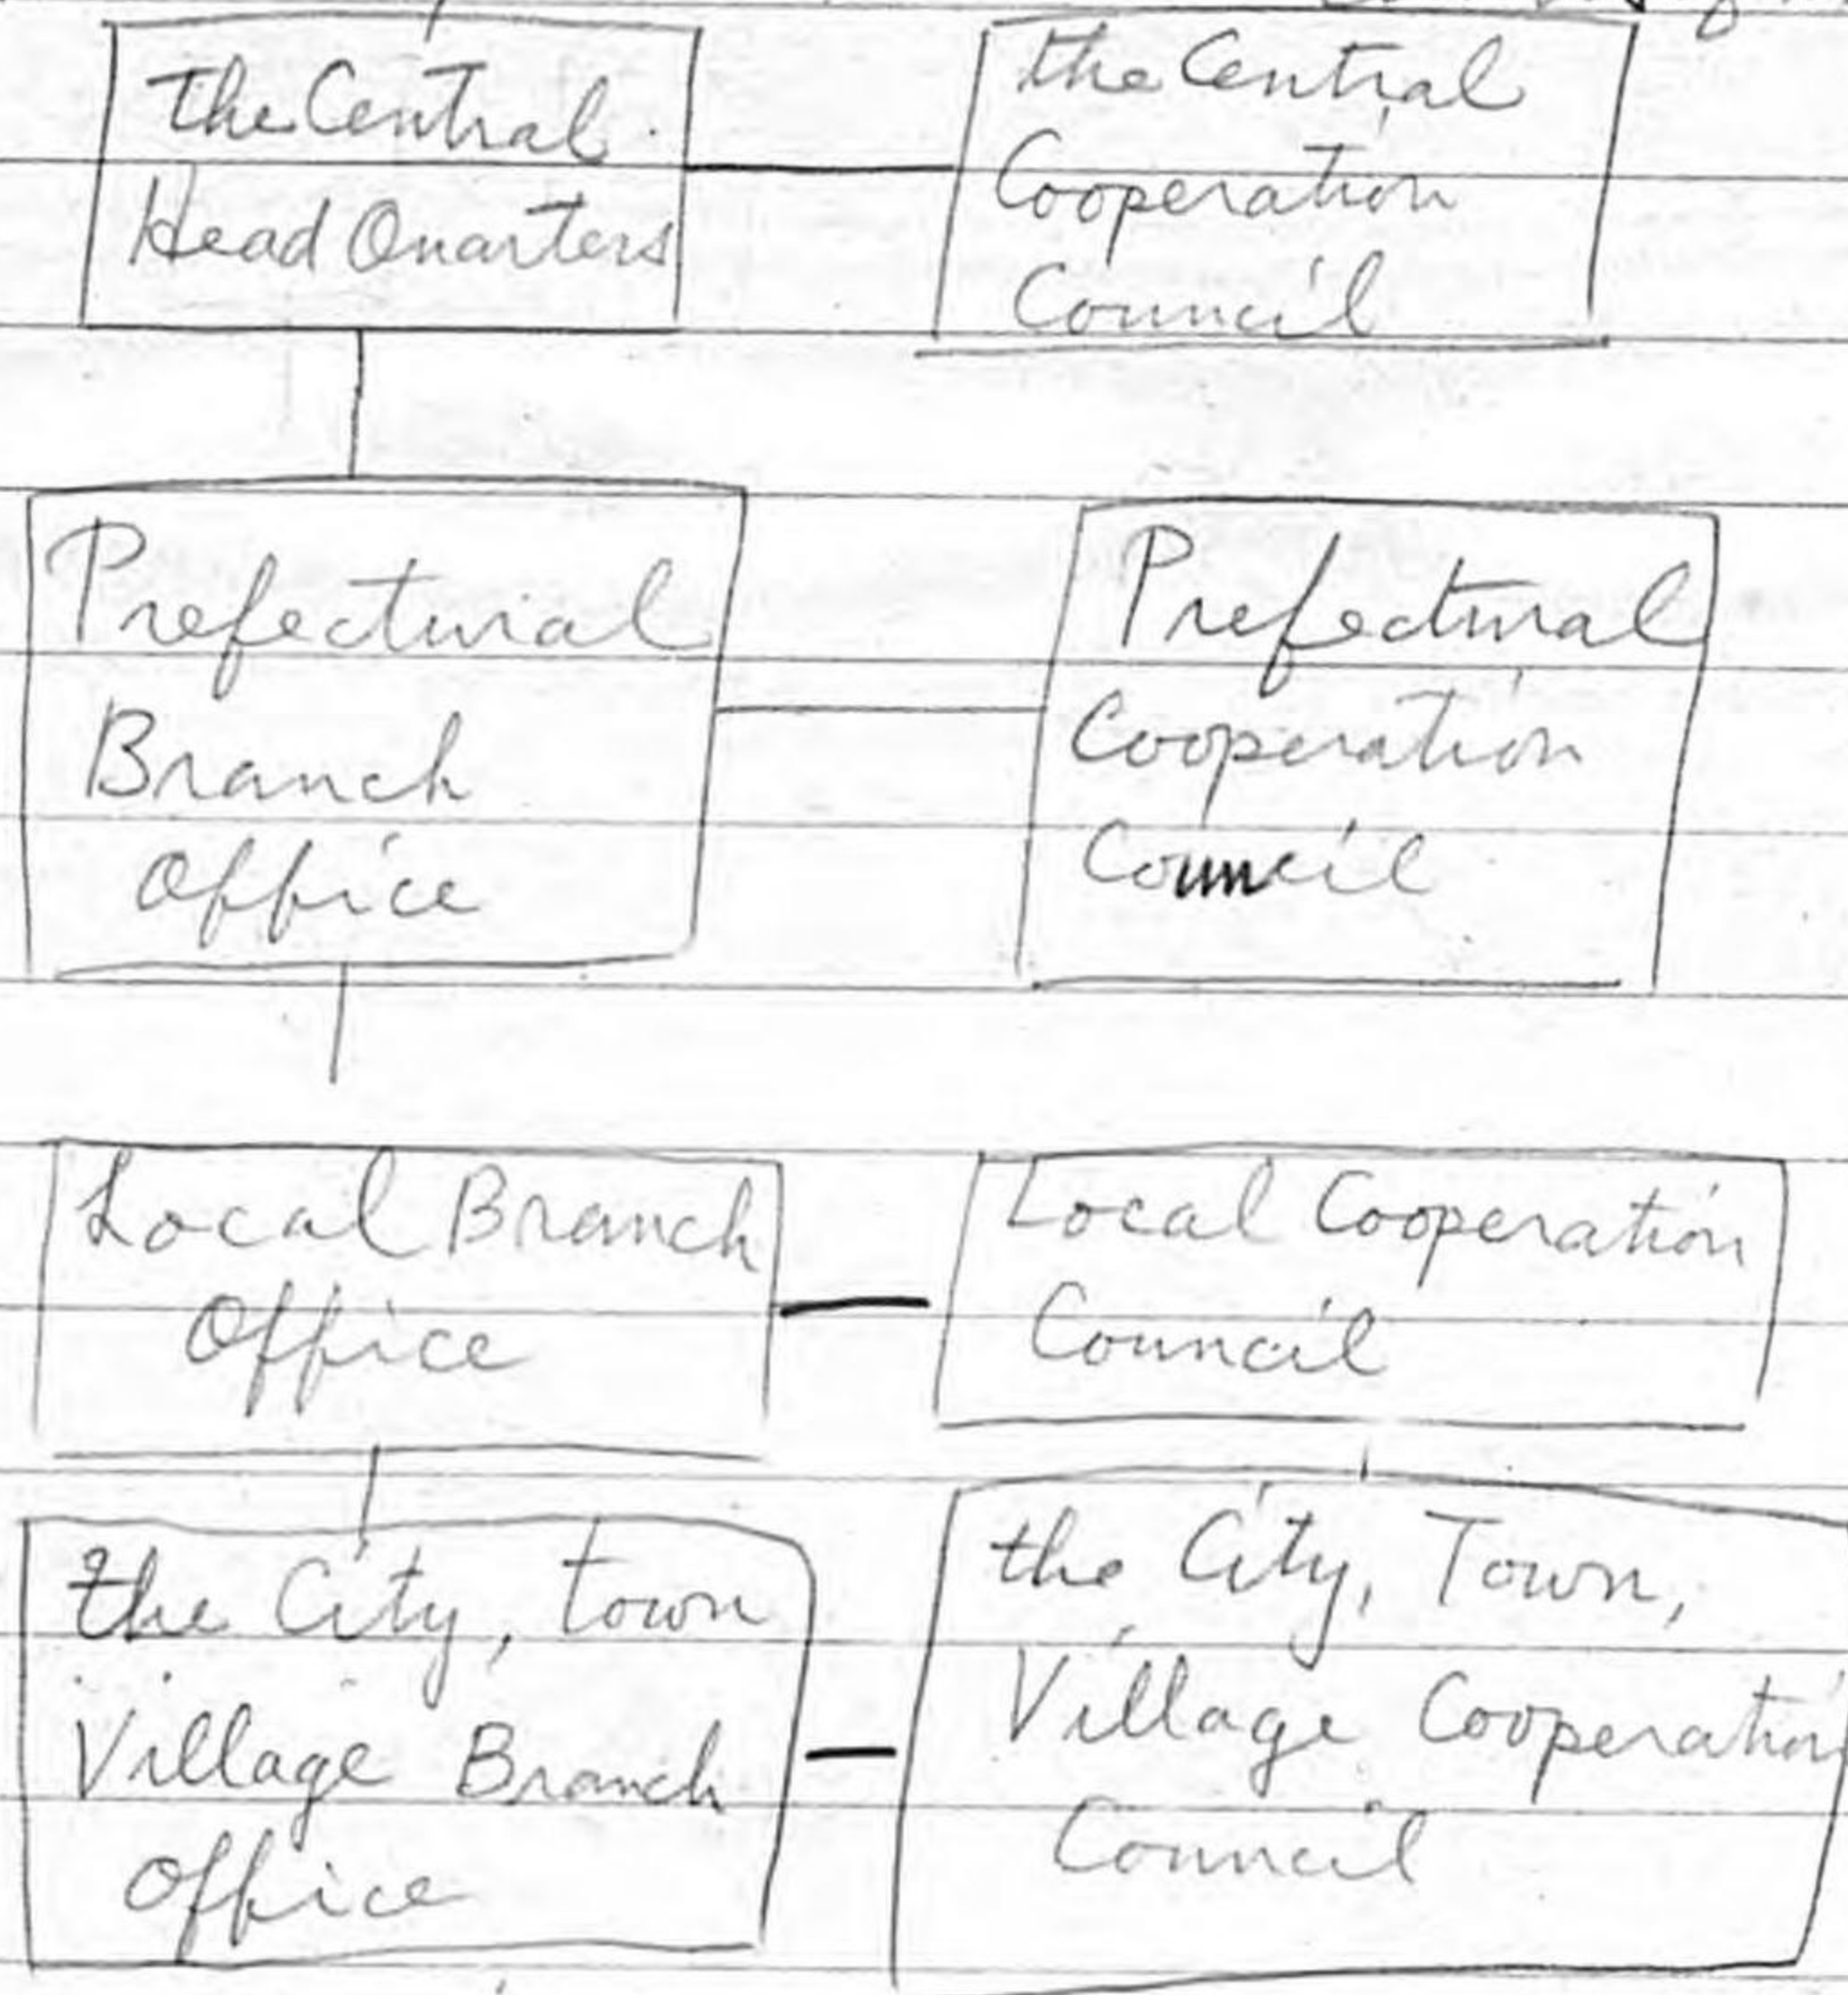 The Central
Head Quarters
the Central
Cooperation
Council
Prefectural
Branch
Office
Prefectural
Cooperation
Council
Local Branch
Office
Local Cooperation
Council
the City, town
Village Branch
Office
the City, Town,
Village Cooperation
Council